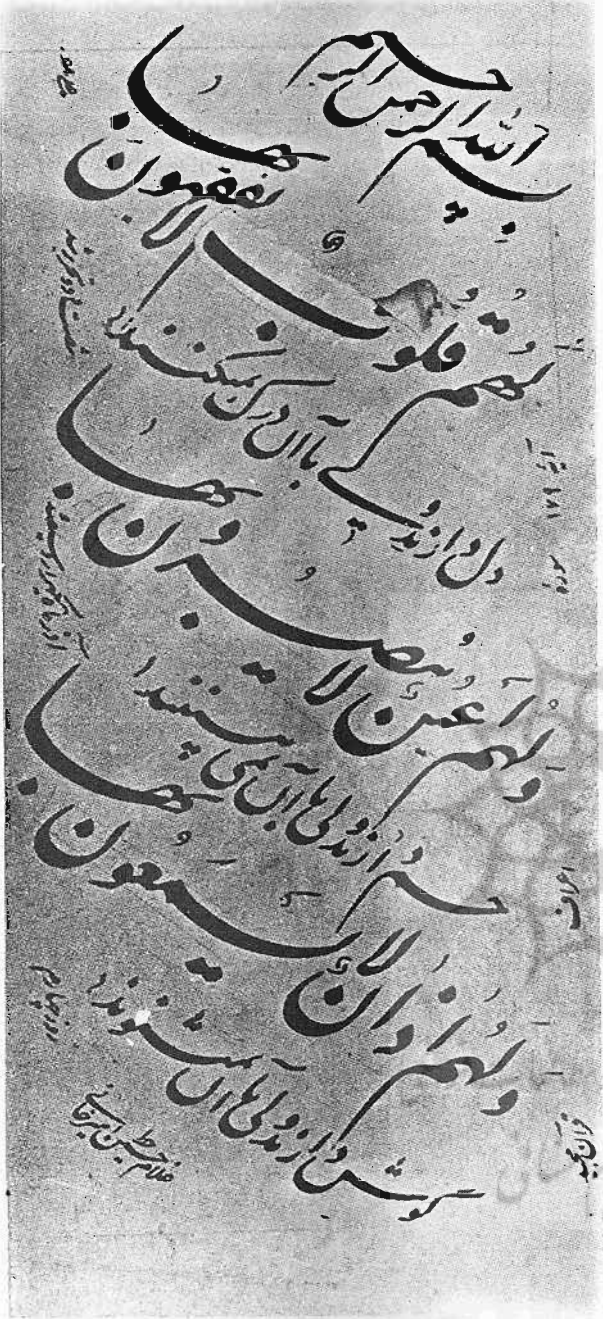 بسم الله الرحمن الرحیم
لهم قلوب لا یفقهون بها
دل دارند ولی با آن درک نمیکنند
ولهم أعین لا یبصرون بها
چشم دارند ولی با آن نمی‌بینند
ولهم اذان لا یسمعون بها
گوش دارند ولی با آن نمیشنوند
آیه ۱۷۹ سوره
اعراف
قرآن مجید
غلامحسین امیرخانی